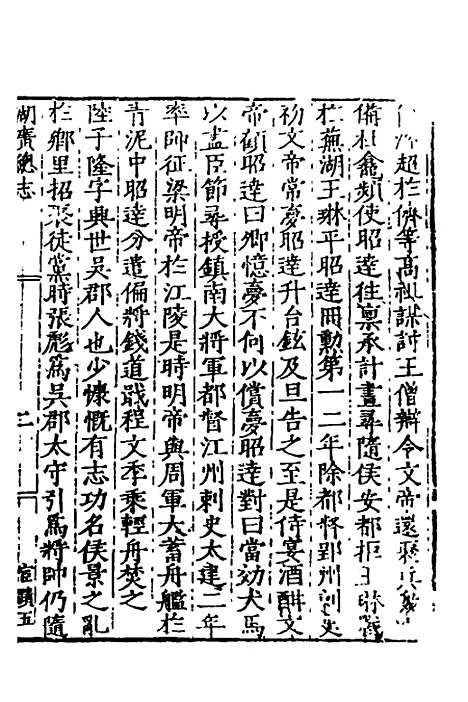 超於儕等高祖謀討王僧辯令文帝還長城
備杜龕頻使昭達往稟承計畫尋隨侯安都拒王琳戰
於蕪湖王琳平昭達冊勳第一二年除都督郢州刺史
初文帝常夢昭達升台鉉及旦告之至是侍宴酒酣文
帝顧昭達曰卿憶夢不何以償夢昭達對曰當効犬馬
以盡臣節尋授鎮南大將軍都督江州刺史太建二年
率師征梁明帝於江陵是時明帝與周軍大蓄舟艦於
青泥中昭達分遣偏將錢道戢程文季乘輕舟焚之
陸子隆字興世吳郡人也少慷慨有志功名侯景之亂
於鄉里招聚徒黨時張彪為吳郡太守引為將帥仍隨
湖廣總志
二
宦蹟五